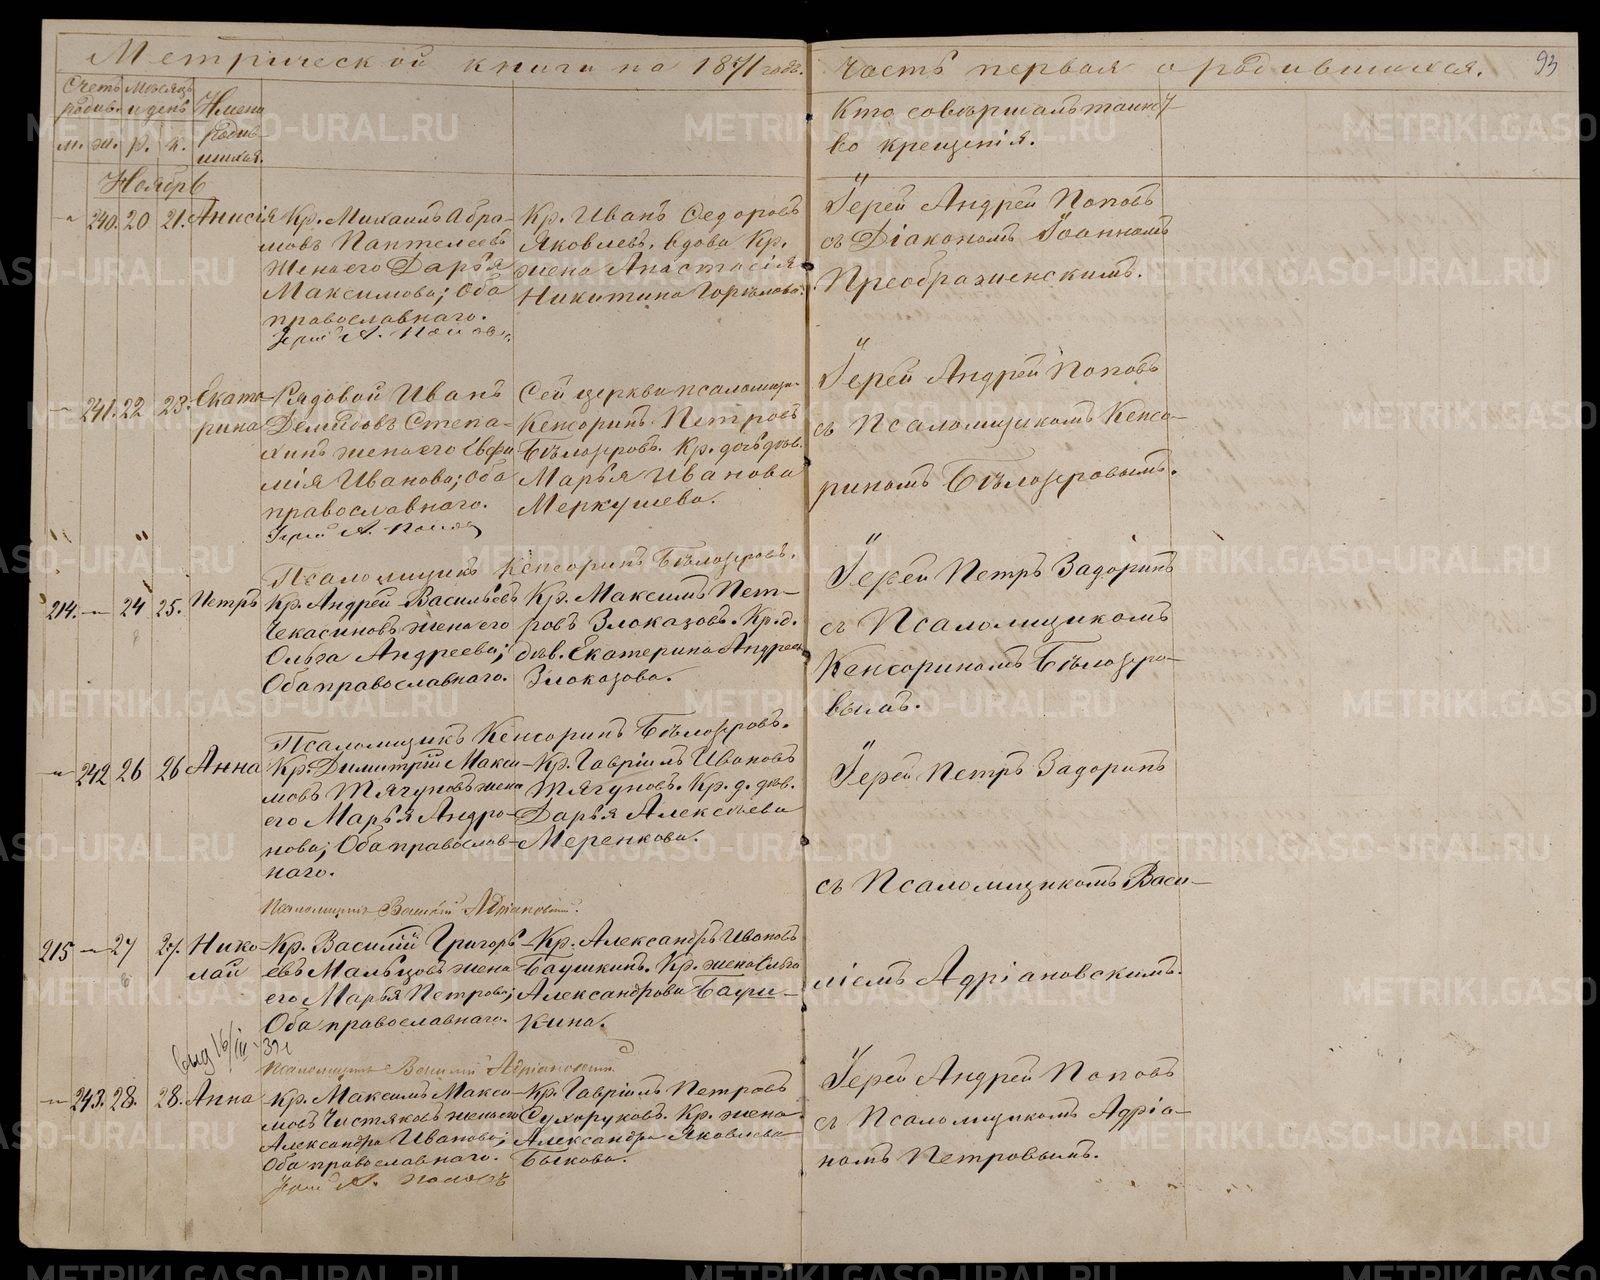 Метрической книги на 1871 годъ. Часть первая о родившихся. 93
Счетъ родив. Мѣсяцъ и день Имена родившихся.
м. ж. р. к.
Кто совершалъ таинство крещенія.
Ноябрь
240. 20 21. Анисія
Кр. Михаилъ Абра-
мовъ Пантелеевъ
жена его Дарья
Максимова; Оба
православнаго.
Іерей А. Поповъ
Кр. Иванъ Седоровъ
Яковлевъ. вдова Кр.
жена Анастасія
Никитина Горѣлова.
Іерей Андрей Поповъ
съ Діакономъ Іоанномъ
Преображенскимъ.
241. 22 23. Екате-
рина
Рядовой Иванъ
Демидовъ Степа-
хинъ жена его Евфи
мія Иванова; Оба
православнаго.
Іерей А. Поповъ
Сей церкви псаломщи-
Кенсоринъ Петровъ
Бѣлозеровъ. Кр. дочь дѣв.
Марья Иванова
Меркушева.
Іерей Андрей Поповъ
съ Псаломщикомъ Кенсо-
риномъ Бѣлозеровымъ.
Псаломщикъ Кенсоринъ Бѣлозеровъ.
214. 24 25. Петръ
Кр. Андрей Васильевъ
Чекасиновъ жена его
Ольга Андреева;
Оба православнаго.
Кр. Максимъ Пет-
ровъ Злоказовъ. Кр. д.
дѣв. Екатерина Андреев
Злоказова.
Іерей Петръ Задоринъ
съ Псаломщикомъ
Кенсориномъ Бѣлозеро-
вымъ.
Псаломщикъ Кенсоринъ Бѣлозеровъ.
242 26 26 Анна
Кр. Димитрій Макси-
мовъ Тягуновъ жена
его Марья Андро-
нова; Оба православ-
наго.
Кр. Гавріилъ Ивановъ
Тягуновъ. Кр. д. дѣв.
Дарья Алексѣева
Меренкова.
Іерей Петръ Задоринъ
съ Псаломщикомъ Васи-
ліемъ Адріановскимъ.
Псаломщикъ Василій Адріановскій.
215 27 27. Нико-
лай
Кр. Василій Григорь-
евъ Мальцовъ жена
его Марья Петрова;
Оба православнаго.
Кр. Александръ Ивановъ
Баушкинъ. Кр. жена Ольга
Александрова Бауш-
кина.
выд 16/III-39г
Псаломщикъ Василій Адріановскій
243. 28. 28. Анна
Кр. Максимъ Макси-
мовъ Чистяковъ жена его
Александра Иванова;
Оба православнаго.
Іерей А. Поповъ
Кр. Гавріилъ Петровъ
Сухоруковъ. Кр. жена
Александра Яковлева
Быкова.
Іерей Андрей Поповъ
съ Псаломщикомъ Адріа-
номъ Петровымъ.
METRIKI.GASO-URAL.RU